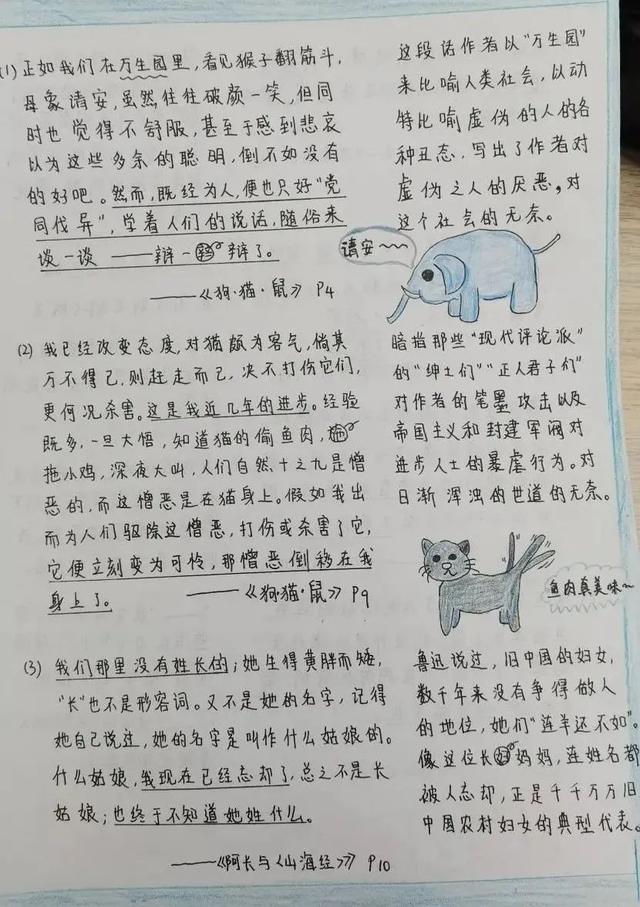 (1) 正如我们在万生园里，看见猴子翻筋斗，
母象请安，虽然往往破颜一笑，但同
时也觉得不舒服，甚至于感到悲哀
以为这些多余的聪明，倒不如没有
的好吧。然而，既经为人，便也只好“党
同伐异”，学着人们的说话，随俗来
谈一谈——辩一辩了。
——《狗·猫·鼠》 P4
这段话作者以“万生园”
来比喻人类社会，以动
特比喻虚伪的人的各
种丑态，写出了作者对
虚伪之人的厌恶。对
这个社会的无奈。
请安～～
(2) 我已经改变态度，对猫颇为客气，倘其
万不得已，则赶走而已，决不打伤它们，
更何况杀害。这是我近几年的进步。经验
既多，一旦大悟，知道猫的偷鱼肉，
拖小鸡，深夜大叫，人们自然十之九是憎
恶的，而这憎恶是在猫身上。假如我出
而为人们驱除这憎恶，打伤或杀害了它，
它便立刻变为可怜，那憎恶倒移在我
身上了。
——《狗·猫·鼠》 P9
暗指那些“现代评论派”
的“绅士们”“正人君子们”
对作者的笔墨攻击以及
帝国主义和封建军阀对
进步人士的暴虐行为。对
日渐浑浊的世道的无奈。
鱼肉真美味～
(3) 我们那里没有姓长的；她生得黄胖而矮，
“长”也不是形容词。又不是她的名字，记得
她自己说过，她的名字是叫作什么姑娘的。
什么姑娘，我现在已经忘却了，总之不是长
姑娘；也终于不知道她姓什么。
——《阿长与《山海经》》 P10
鲁迅说过，旧中国的妇女，
数千年来没有争得做人
的地位，她们“连羊还不如”。
像这位长妈妈，连姓名都
被人忘却，正是千千万万旧
中国农村妇女的典型代表。